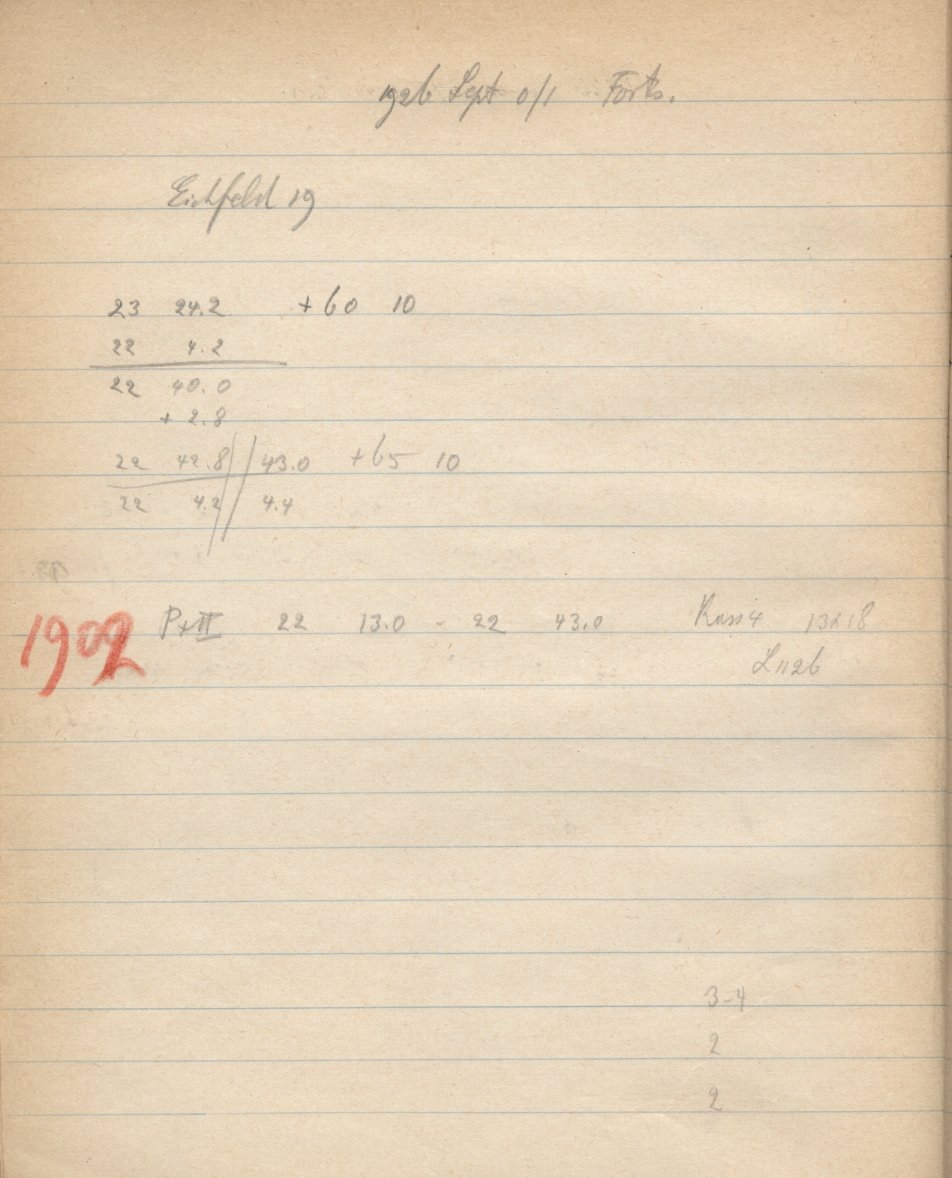 1926 Sept 0/1 Forts.
Eichfeld 19
23 24.2 +60 10
22 4.2
22 40.0
+ 2.8
22 42.8 // 43.0 +65 10
22 4.2 // 4.4
1902 P+II 22 13.0 - 22 43.0 Kass 4 13x18
L 1126
3-4
2
2